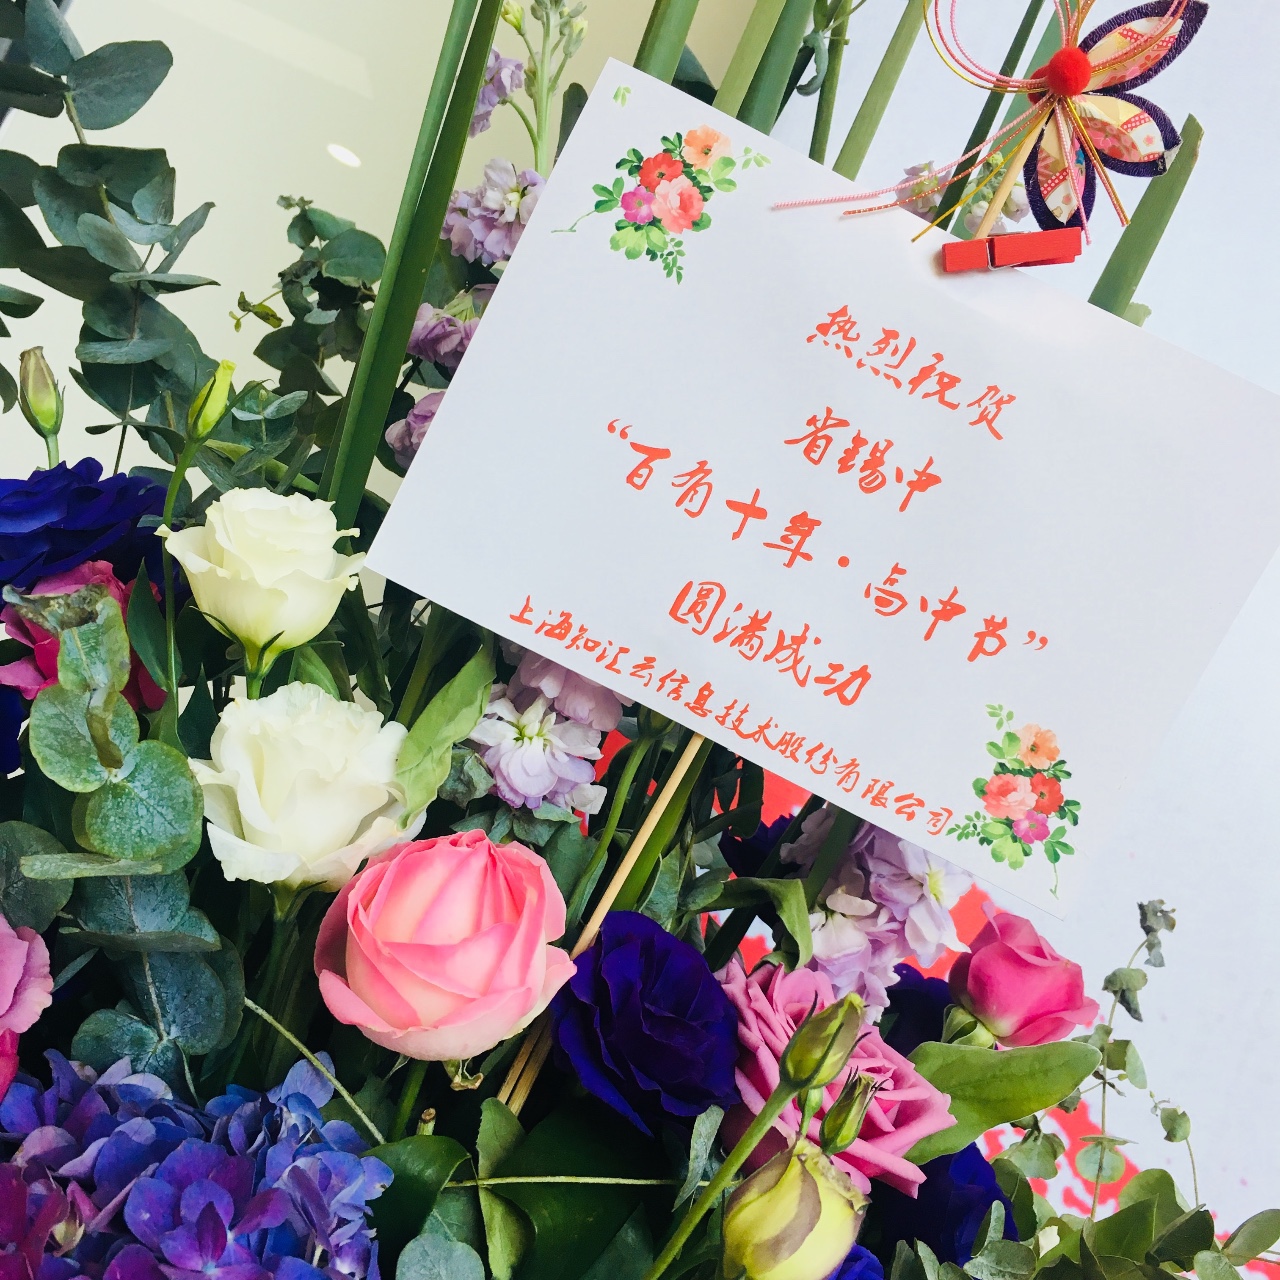 热烈祝贺
省锡中
“百有十年·高中节”
圆满成功
上海知汇云信息技术股份有限公司